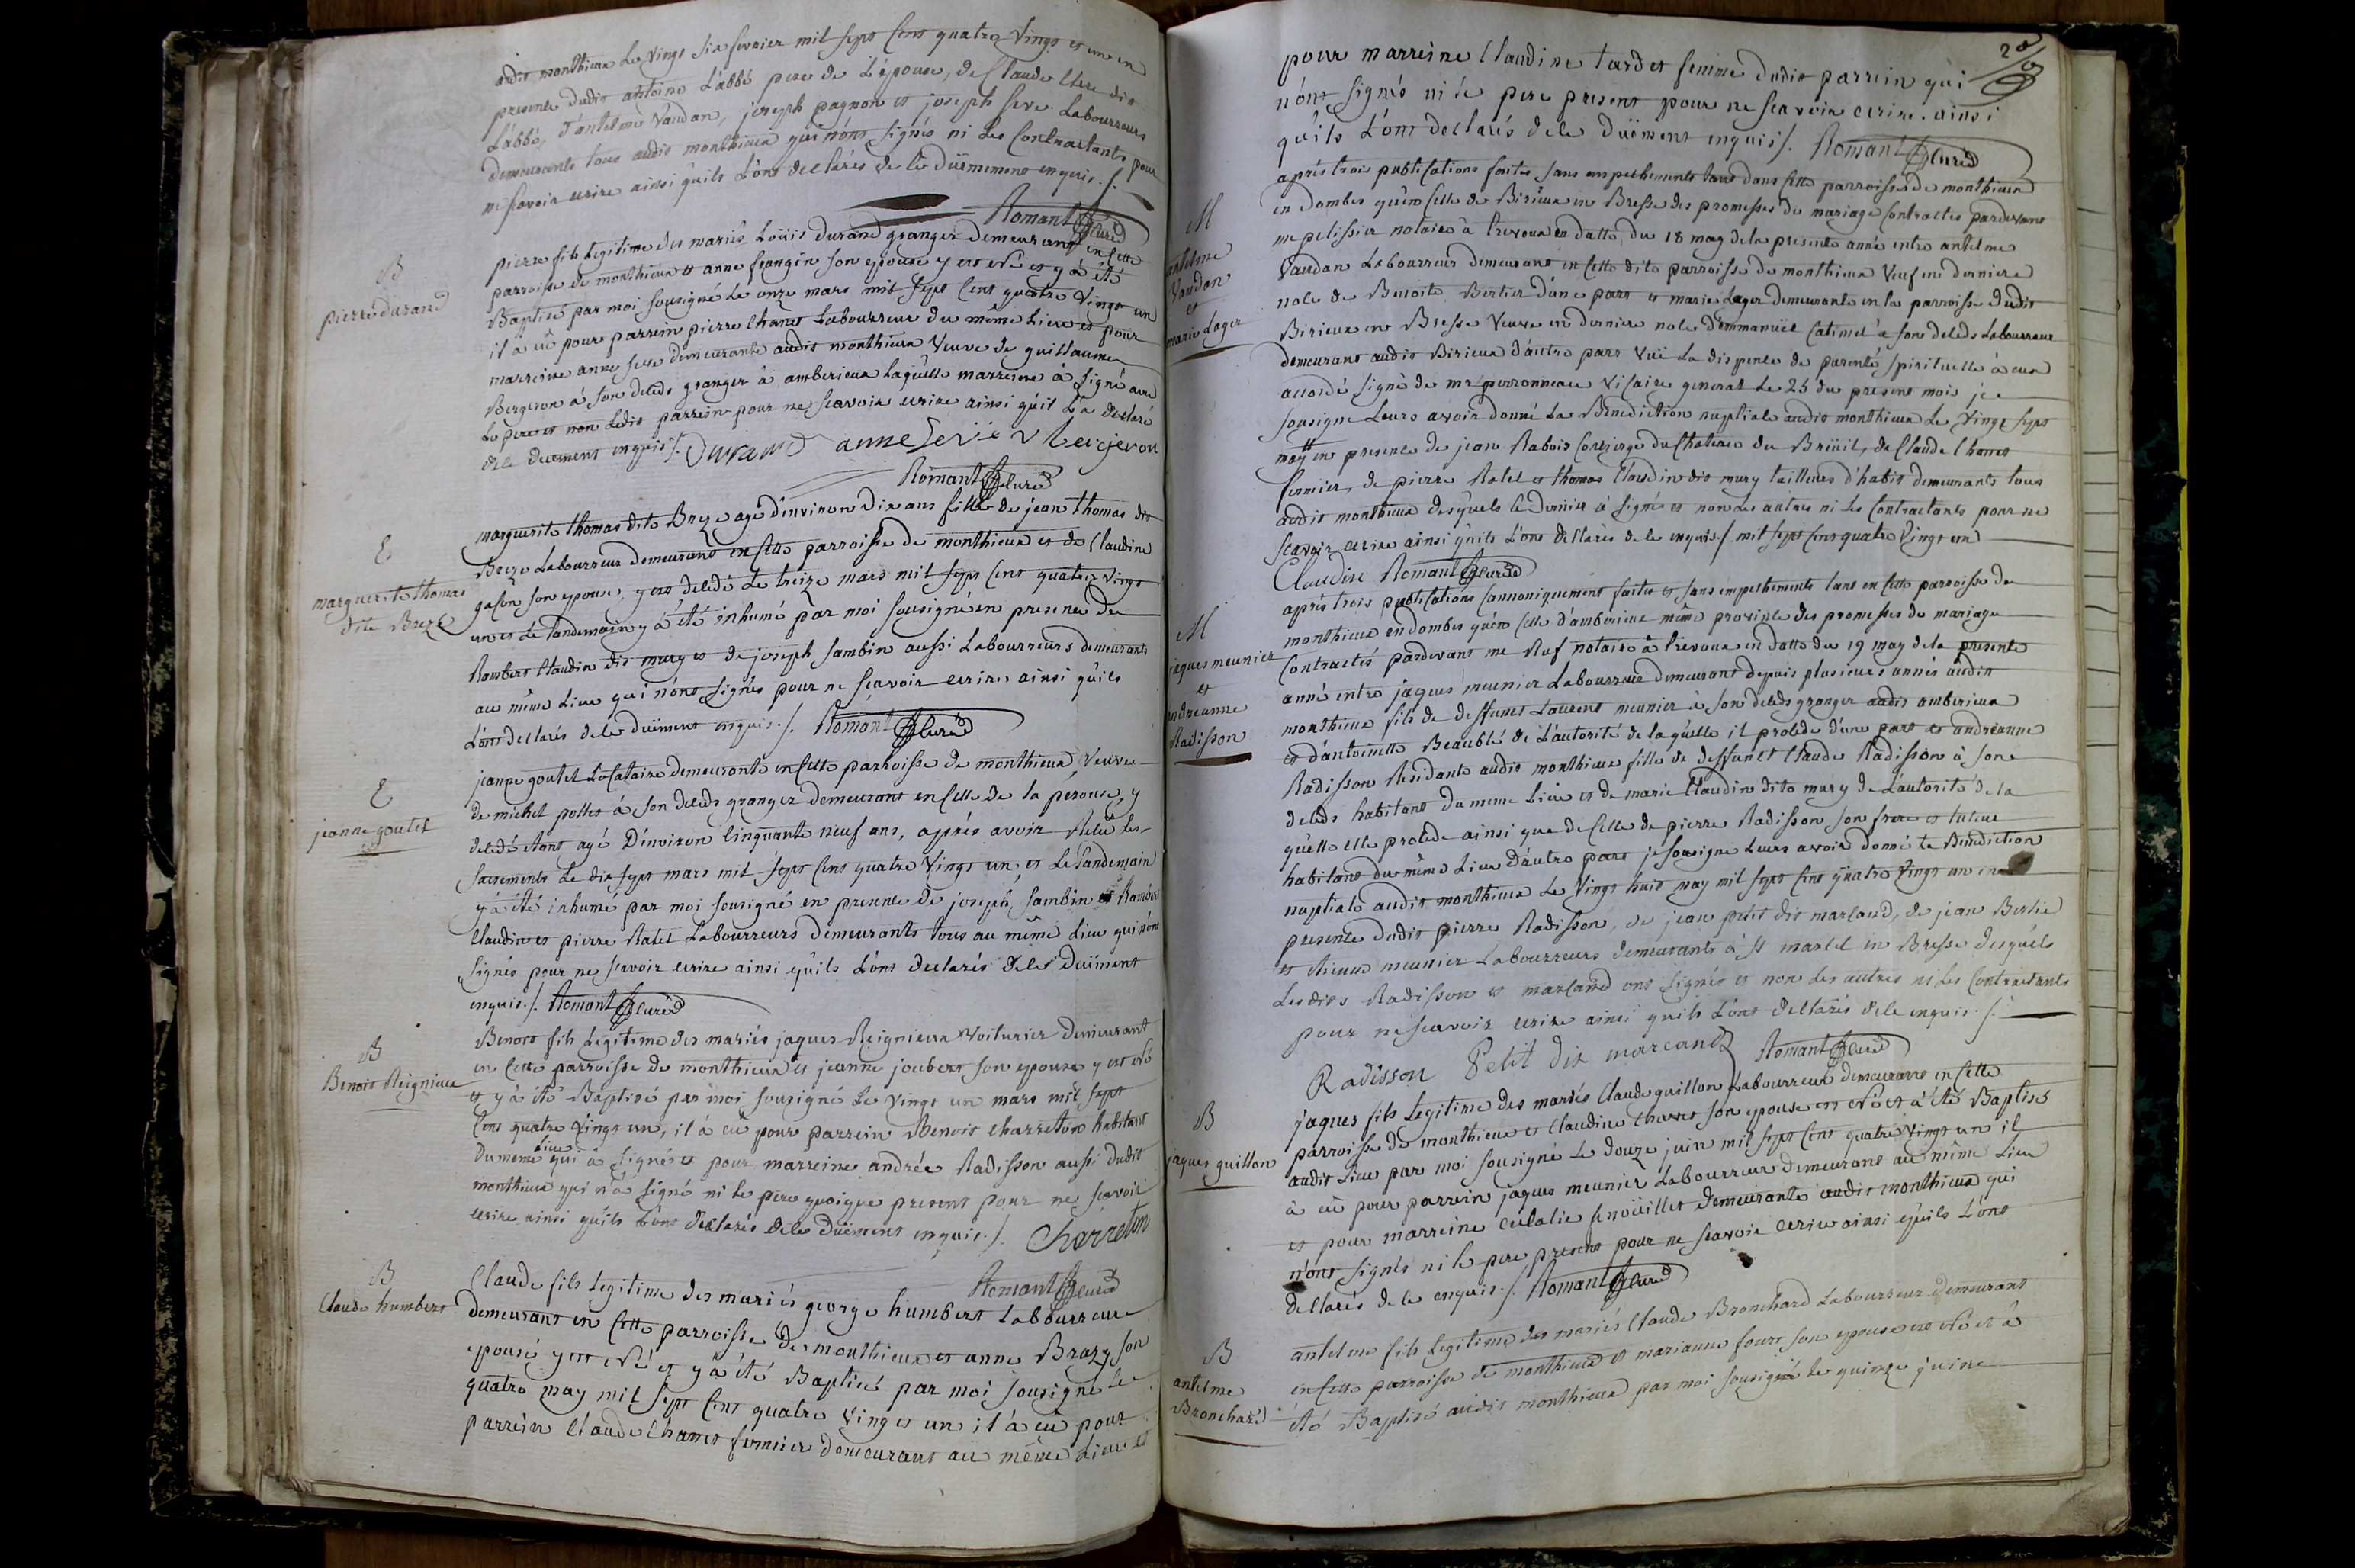 audit monthieux Le vingt six fevrier mil sept Cent quatre vingt et un en
presence dudit antoine L'abbé pere de L'épouse, de Claude Clere dit
L'abbé, d'antelme Vaudan, joseph pagnon et joseph seve Labourreurs
demeurants tous audit monthieux qui n'ont signés ni Les Contractants pour
ne sçavoir ecrire ainsi qu'ils L'ont declarés de ce düement enquis ./.
Romant Curé
B
pierre durand
pierre fils Legitime des mariés Loüis durand granger demeurant en Cette
parroisse de monthieux et anne frangin son epouse y est né et y à été
Baptisé par moi sousigné Le onze mars mil sept Cent quatre vingt un
il à eû pour parrein pierre Chanet Labourreur du même Lieu et pour
marreine anne seve demeurante audit monthieux veuve de guillaume
Bergeron à son deceds granger à amberieux Laquelle marreine à signé avec
Le pere et non Ledit parrein pour ne sçavoir ecrire ainsi qu'il L'a declaré
de ce duement enquis ./. Durand anne seve v bergeron
Romant Curé
E
marguerite thomas
dite Breze
marguerite thomas dite Breze agé d'environ dix ans fille de jean thomas dit
Breze Labourreur demeurant en Cette parroisse de monthieux et de Claudine
son epouse, y est decedé Le treize mars mil sept Cent quatre vingt
un et Le Landemain y à été inhumé par moi sousigné en presence de
Rambert Claudin dit mury et de joseph sambin aussi Labourreurs demeurants
au même Lieu qui n'ont signés pour ne sçavoir ecrire ainsi qu'ils
L'ont declarés de ce duëment enquis ./. Romant Curé
E
jeanne goutet
jeanne goutet Locataire demeurante en Cette parroisse de monthieux, veuve
de michel pottet à son deceds granger demeurant en Celle de la perouse, y
decedé etant agé D'environ Cinquante neuf ans, après avoir Relu Les
sacrements Le dix sept mars mil sept Cent quatre vingt un, et Le Landemain
y à été inhumé par moi sousigné en presence de joseph sambin et Rambert
Claudin et pierre Ratel Labourreurs demeurants tous au même Lieu qui n'ont
signés pour ne sçavoir ecrire ainsi qu'ils L'ont declarés de ce duëment
enquis ./. Romant Curé
B
Benoit Reignieux
Benoit fils Legitime des mariés jaques Reignieux voiturier demeurant
en Cette parroisse de monthieux et jeanne joubert son epouse y est né
et y à été Baptisé par moi sousigné Le vingt un mars mil sept
Cent quatre vingt un, il à eû pour parrein Benoit Charreton habitant
du meme Lieu qui à signé et pour marreine andrée Radisson aussi dudit
monthieux qui n'à signé ni Le pere quoique present pour ne sçavoir
ecrire ainsi qu'ils L'ont declarés de ce duëment enquis ./. Charreton
Romant Curé
B
Claude humbert
Claude fils Legitime des mariés george humbert Labourreur
demeurant en Cette parroisse de monthieux et anne Brazy son
epouse y est né et y à été Baptisé par moi sousigné le
quatre may mil sept Cent quatre vingt et un il à eû pour
parrein Claude Chanet fermier demeurant au même Lieu et
28
pour marreine Claudine tardet femme dudit parrein qui
n'ont signés ni le pere present pour ne sçavoir ecrire. ainsi
qu'ils L'ont declarés de ce duëment enquis ./. Romant Curé
M
antelme
Vaudan
et
marie Lager
après trois publications faites sans empechements tant dans Cette parroisse de monthieux
en dombes qu'en Celle de Birieux en Bresse des promesses de mariage Contractés pardevant
me pelissier notaire à trevoux en datte du 18 may de la presente année entre antelme
Vaudan Labourreur demeurant en Cette dite parroisse de monthieux Veuf en derniere
noce de Benoite Bertier d'une part et marie Lager demeurante en la parroisse dudit
Birieux en Bresse veuve en derniere noce d'emmanuel Catimel à son deceds Labourreur
demeurant audit Birieux d'autre part vüe La dispence de parenté spirituelle à eux
accordé signé de mr perronneau vicaire general Le 25 du present mois je
sousigne Leurs avoir donné La Benediction nuptiale audit monthieux Le vingt sept
may en presence de jean Rabois Concierge du Chateau du Breüil, de Claude Chanet
fermier, de pierre Ratel et thomas Claudin dit mury tailleur d'habit demeurants tous
audit monthieux desquels le dernier à signé et non les autres ni Les Contractants pour ne
sçavoir ecrire ainsi qu'ils L'ont declarés de ce enquis ./. mil sept Cent quatre vingt un
Claudin Romant Curé
M
jaques meunier
et
andreanne
Radisson
après trois publications Cannoniquement faites et sans empechements tant en Cette parroisse de
monthieux en dombes qu'en Celle d'amberieux même province des promesses de mariage
Contractés pardevant me Ruf notaire à trevoux en datte du 19 may de la presente
anné entre jaques meunier Labourreur demeurant depuis plusieurs annés audit
monthieux fils de deffunct Laurent meunier à son deceds granger audit amberieux
et d'antoinette Beaublé de L'autorité de laquelle il procede d'une part et andreanne
Radisson Residante audit monthieux fille de deffunct Claude Radisson à son
deceds habitant du meme Lieu et de marie Claudin dite mury de L'autorité de la
quelle elle procede ainsi que de Celle de pierre Radisson son frere et tuteur
habitant du même Lieu d'autre part je sousigne Leurs avoir donné La Benediction
nuptiale audit monthieux Le vingt huit may mil sept Cent quatre vingt un en
presence dudit pierre Radisson, de jean petit dit marcand, de jean Berlie
et meunier Labourreurs demeurants à st marcel en Bresse desquels
Lesdits Radisson et marcand ont signés et non Les autres ni Les Contractants
pour ne sçavoir ecrire ainsi qu'ils L'ont declarés de ce enquis ./.
Radisson Petit dit marcand Romant Curé
B
jaques guillon
jaques fils Legitime des mariés Claude guillon Labourreur demeurant en Cette
parroisse de monthieux et Claudine Chanet son epouse est né et à été Baptisé
audit Lieu par moi sousigné Le douze juin mil sept Cent quatre vingt un il
à eû pour parrein jaques meunier Labourreur demeurant au même Lieu
et pour marreine eulalie fenoüillet demeurante audit monthieux qui
n'ont signés ni le pere present pour ne sçavoir ecrire ainsi qu'ils L'ont
declarés de ce enquis ./. Romant Curé
B
antelme
Bronchard
antelme fils Legitime des mariés Claude Bronchard Labourreur demeurant
en Cette parroisse de monthieux et marianne four son epouse est né et à
été Baptisé audit monthieux par moi sousigné Le quinze juin